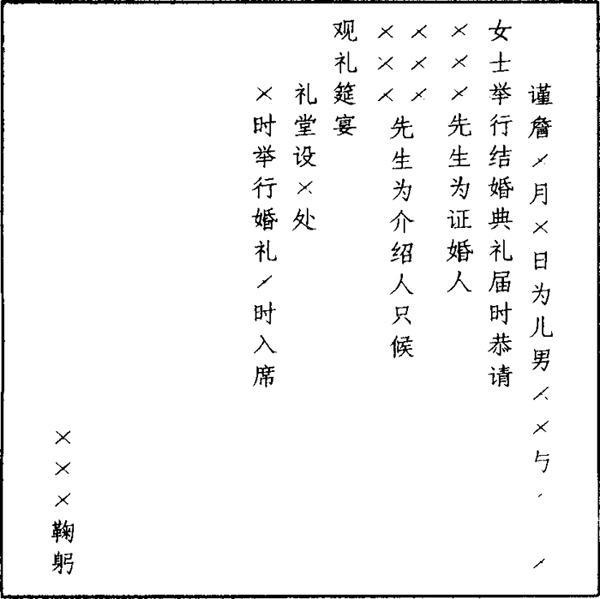 谨詹×月×日为儿男××与
女士举行结婚典礼届时恭请
×××先生为证婚人
×××
×××
先生为介绍人只候
观礼筵宴
礼堂设×处
×时举行婚礼×时入席
×××鞠躬